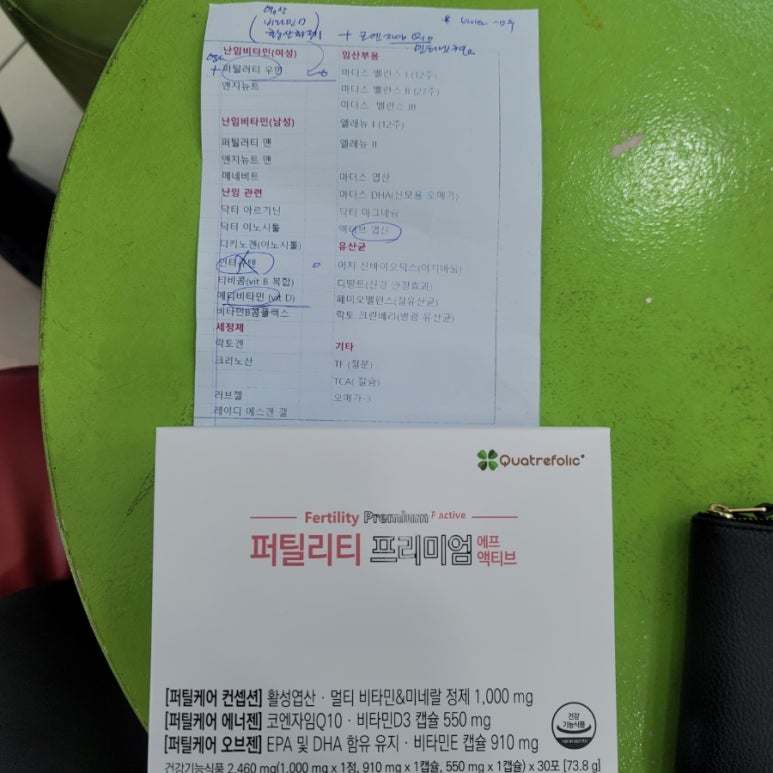 엽산
비타민D
항산화제
+ 코엔자임 Q10
난임비타민(여성) 임산부용
퍼틸리티 우먼 마더스 밸런스 I (12주)
엔지뉴트 마더스 밸런스 II (27주)
마더스 밸런스 III
난임비타민(남성) 엘레뉴 I (12주)
퍼틸리티 맨 엘레뉴 II
엔지뉴트 맨
메네비트 마더스 엽산
난임 관련 마더스 DHA(산모용 오메가)
닥터 아르기닌 닥터 마그네슘
닥터 이노시톨 액티브 엽산
디키노겐(이노시톨) 유산균
어지 신바이오틱스(아기바둥)
티비콤(vit B 복합) 디팡트(신경 안정효과)
메디비타민 (vit D) 페미오밸런스(질유산균)
비타민B콤플렉스 락토 크린베리(방광 유산균)
세정제
락토겐 기타
크리노산 TF (철분)
TCA( 칼슘)
러브젤 오메가-3
레이디 에스겐 겔
Quatrefolic
Fertility Premium F active
퍼틸리티 프리미엄 에프 액티브
[퍼틸케어 컨셉션] 활성엽산 · 멀티 비타민&미네랄 정제 1,000 mg
[퍼틸케어 에너젠] 코엔자임Q10 · 비타민D3 캡슐 550 mg
[퍼틸케어 오브젠] EPA 및 DHA 함유 유지 · 비타민E 캡슐 910 mg
건강
기능식품
건강기능식품 2,460 mg(1,000 mg x 1정, 910 mg x 1캡슐, 550 mg x 1캡슐) x 30포 [73.8 g]